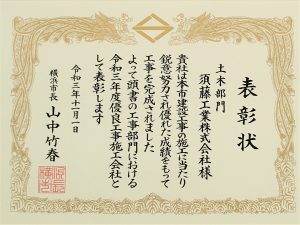 表彰状
土木部門
須藤工業株式会社様
貴社は本市建設工事の施工に当たり
鋭意努力され優れた成績をもって
工事を完成されました
よって頭書の工事部門における
令和三年度優良工事施工会社と
して表彰します
令和三年十一月一日
横浜市長 山中竹春